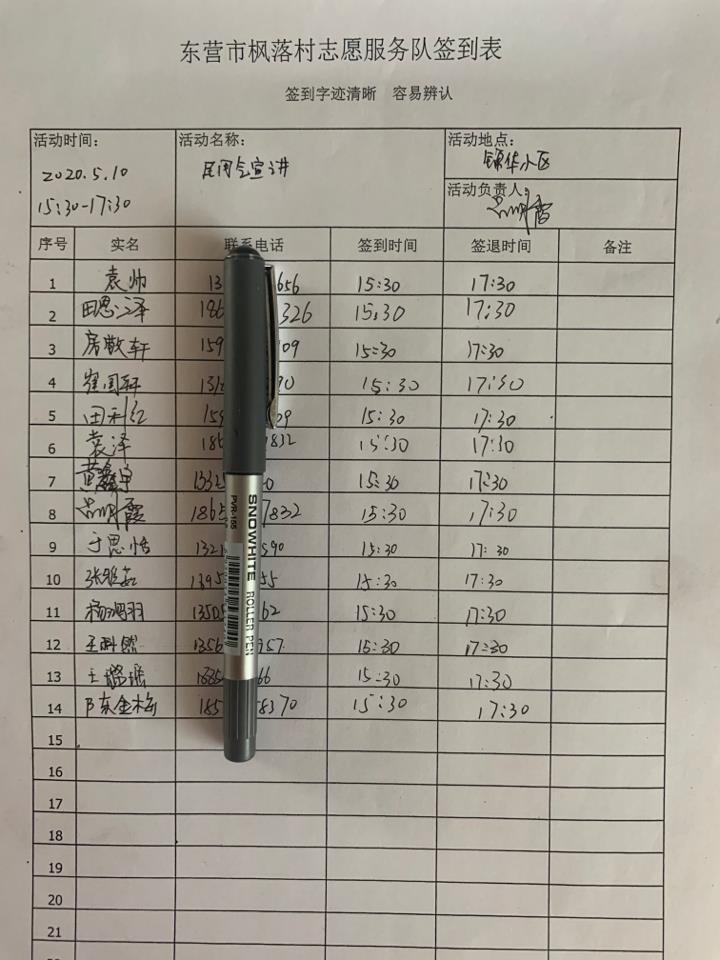 东营市枫落村志愿服务队签到表
签到字迹清晰 容易辨认
活动时间： 活动名称： 活动地点：
2020.5.10 民间会宣讲 锦华小区
15:30-17:30 活动负责人：
序号 实名 联系电话 签到时间 签退时间 备注
1 袁帅 13 656 15:30 17:30
2 田恩泽 186 326 15:30 17:30
3 房敬轩 159 109 15:30 17:30
4 崔国轩 131 90 15:30 17:30
5 田利红 159 09 15:30 17:30
6 袁泽 186 832 15:30 17:30
7 黄鑫宇 1332 0 15:30 17:30
8 1865 7832 15:30 17:30
9 于思恬 1321 590 15:30 17:30
10 张雅茹 1395 55 15:30 17:30
11 杨润羽 13505 62 15:30 17:30
12 王科然 1356 957 15:30 17:30
13 王璐瑶 1885 66 15:30 17:30
14 陈金梅 185 8370 15:30 17:30
15
16
17
18
19
20
21
SNOWHITE ROLLER PEN
PVR-155